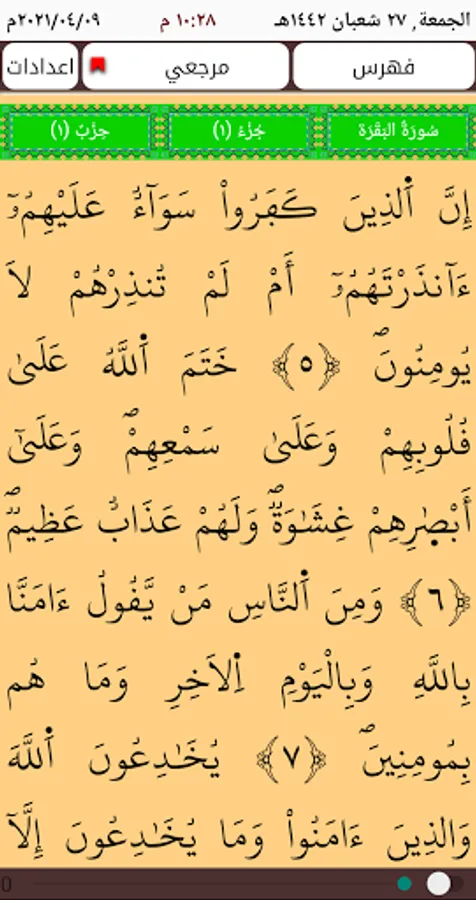 الجمعة, ٢٧ شعبان ١٤٤٢هـ ١٠:٢٨ م ٢٠٢١/٠٤/٠٩م
فهرس مرجعي اعدادات
سُورَةُ البَقَرَة جُزْءُ (١) حِزْبُ (١)
إِنَّ اَ۬لذِينَ كَفَرُواْ سَوَآءٌ عَلَيْهِمُۥٓ
ءَآنذَرْتَهُمُۥٓ أَمْ لَمْ تُنذِرْهُمْ لَا
يُومِنُونَۖ ﴿٥﴾ خَتَمَ اَ۬للَّهُ عَلَىٰ
قُلُوبِهِمْ وَعَلَىٰ سَمْعِهِمْۖ وَعَلَىٰٓ
أَبْصٰ۪رِهِمْ غِشَٰوَةٌۖ وَلَهُمْ عَذَابٌ عَظِيمٌۖ
﴿٦﴾ وَمِنَ اَ۬لنَّاسِ مَنْ يَّقُولُ ءَامَنَّا
بِاللَّهِ وَبِالْيَوْمِ اِ۬لَاخِرِ وَمَا هُم
بِمُومِنِينَۖ ﴿٧﴾ يُخَٰدِعُونَ اَ۬للَّهَ
وَالذِينَ ءَامَنُواْ وَمَا يُخَٰدِعُونَ إِلَّآ
0